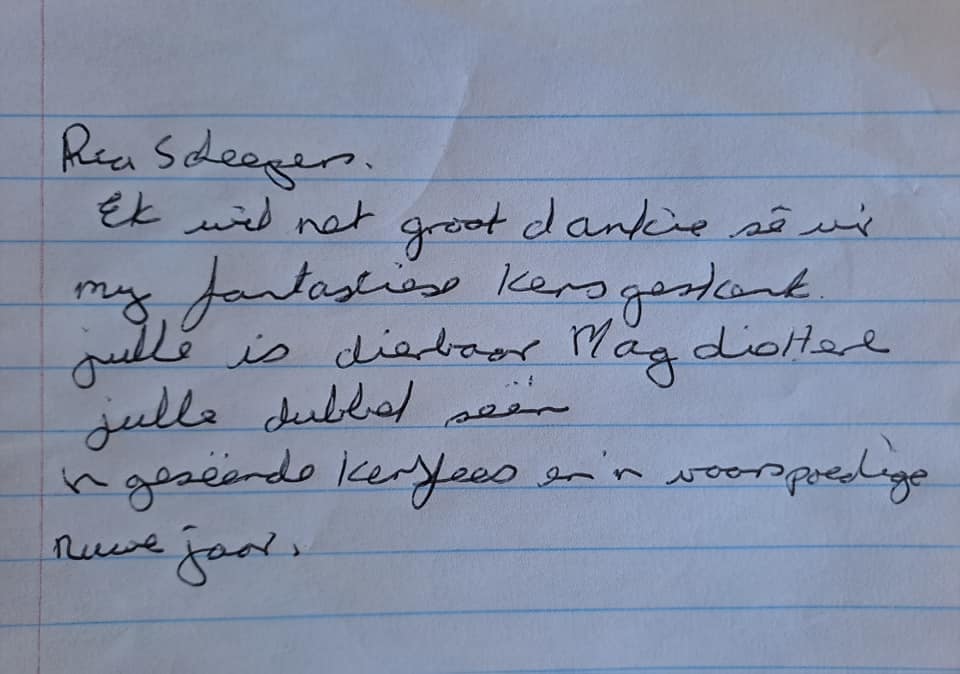 Ria Scheepers.
Ek wil net groot dankie sê vir
my fantastiese kersgeskenk.
julle is dierbaar Mag die Here
julle dubbel seën
'n geseënde kersfees en 'n voorspoedige
nuwe jaar.